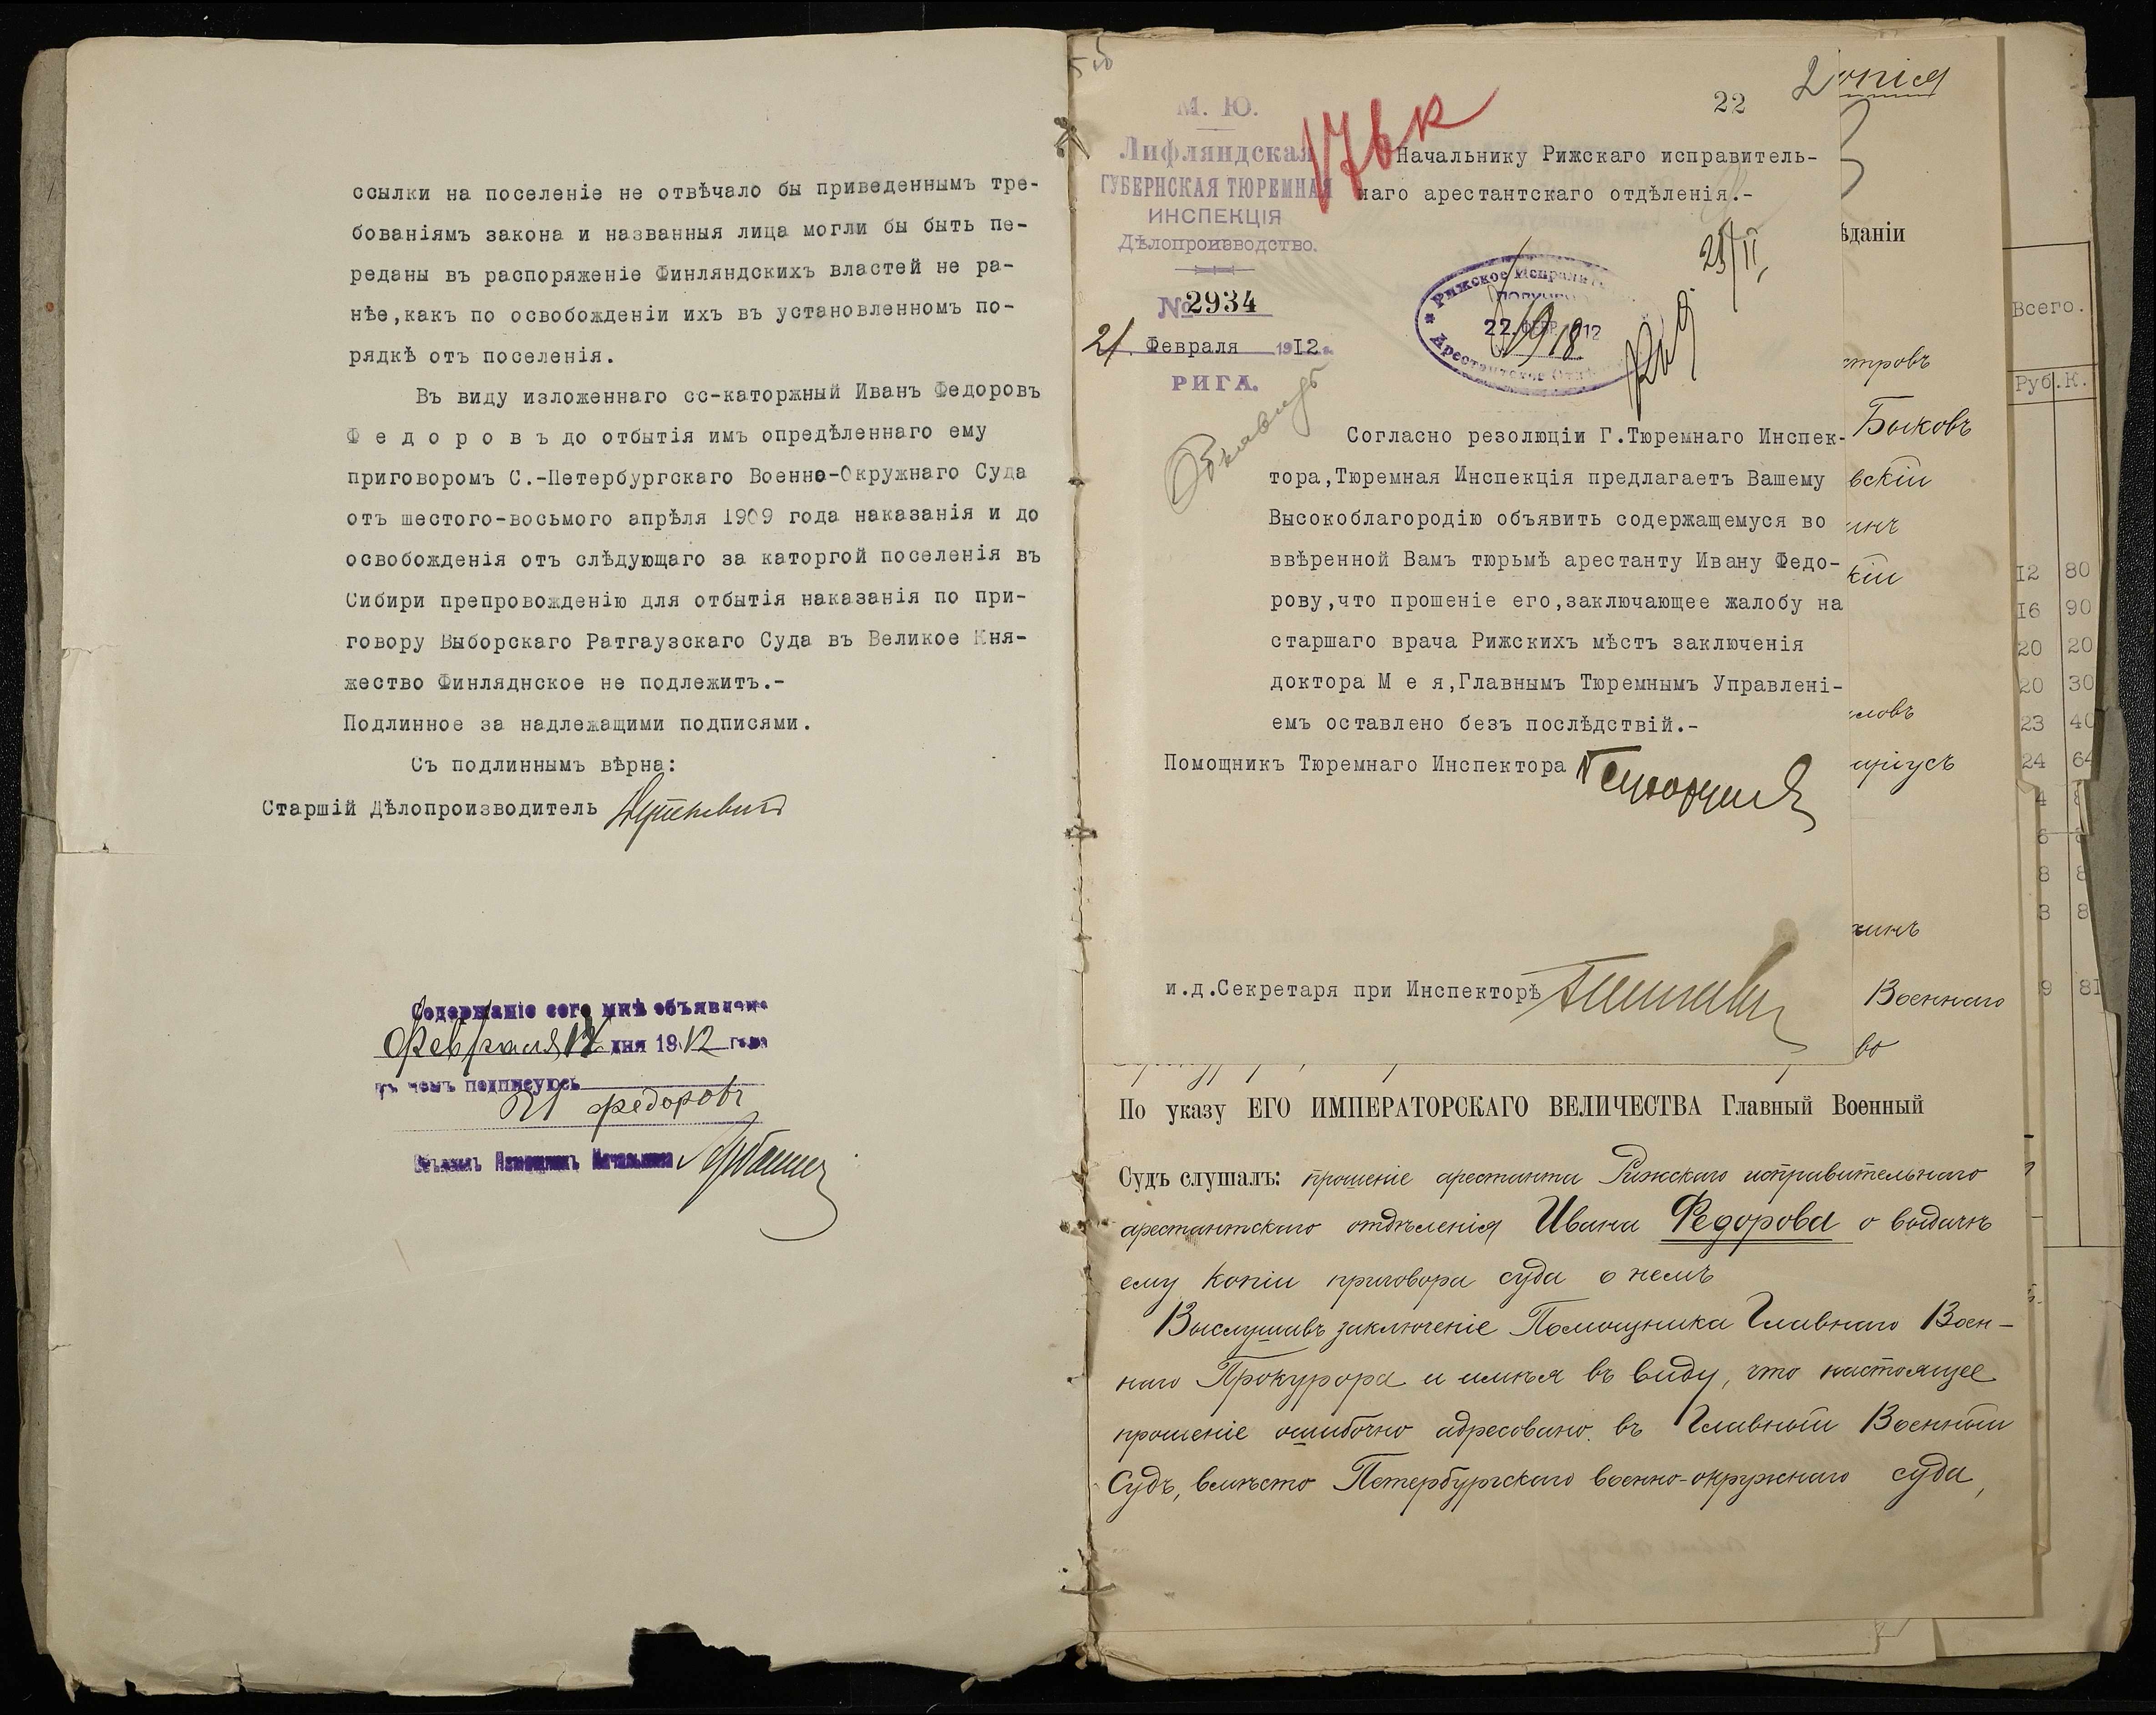 ссылки на поселеніе не отвѣчало бы приведеннымъ тре-
бованіямъ закона и названныя лица могли бы быть пе-
реданы въ распоряженіе Финляндскихъ властей не ра-
нѣе,какъ по освобожденіи ихъ въ установленномъ по-
рядкѣ отъ поселенія.
Въ виду изложеннаго сс-каторжный Иванъ Федоровъ
Ф е д о р о в ъ до отбытія имъ опредѣленнаго ему
приговоромъ С.-Петербургскаго Военно-Окружнаго Суда
отъ шестого-восьмого апрѣля 1909 года наказанія и до
освобожденія отъ слѣдующаго за каторгой поселенія въ
Сибири препровожденію для отбытія наказанія по при-
говору Выборскаго Ратгаузскаго Суда въ Великое Кня-
жество Финляднское не подлежитъ.-
Подлинное за надлежащими подписями.
Съ подлиннымъ вѣрна:
Старшій Дѣлопроизводитель
Содержаніе сего мнѣ объявлено
Февраля дня 1912 года
въ чемъ подписуюсь
И Федоровъ
Начальника
22
М. Ю.
Лифляндская
ГУБЕРНСКАЯ ТЮРЕМНАЯ
ИНСПЕКЦІЯ
Дѣлопроизводство.
№ 2934
21 Февраля 1912 г.
РИГА.
Начальнику Рижскаго исправитель-
наго арестантскаго отдѣленія.-
Рижское Исправит
22 ФЕВР 1912
Арестантское
Согласно резолюціи Г.Тюремнаго Инспек-
тора,Тюремная Инспекція предлагаетъ Вашему
Высокоблагородію объявить содержащемуся во
ввѣренной Вамъ тюрьмѣ арестанту Ивану Федо-
рову,что прошеніе его,заключающее жалобу на
старшаго врача Рижскихъ мѣстъ заключенія
доктора М е я,Главнымъ Тюремнымъ Управлені-
емъ оставлено безъ послѣдствій.-
Помощникъ Тюремнаго Инспектора
и.д.Секретаря при Инспекторѣ
опія
ѣданіи
тровъ
Быковъ
вскій
кій
Военнаго
во
По указу ЕГО ИМПЕРАТОРСКАГО ВЕЛИЧЕСТВА Главный Военный
Судъ слушалъ: прошеніе арестанта Рижскаго исправительнаго
арестантскаго отдѣленія Ивана Федорова о выдачѣ
ему копіи приговора суда о немъ
Выслушавъ заключеніе Помощника Главнаго Воен-
наго Прокурора и имѣя въ виду, что настоящее
прошеніе ошибочно адресовано въ Главный Военный
Судъ, вмѣсто Петербургскаго военно-окружнаго суда,
Всего.
Руб. К.
12 80
16 90
20 20
20 30
23 40
24 64
9 81